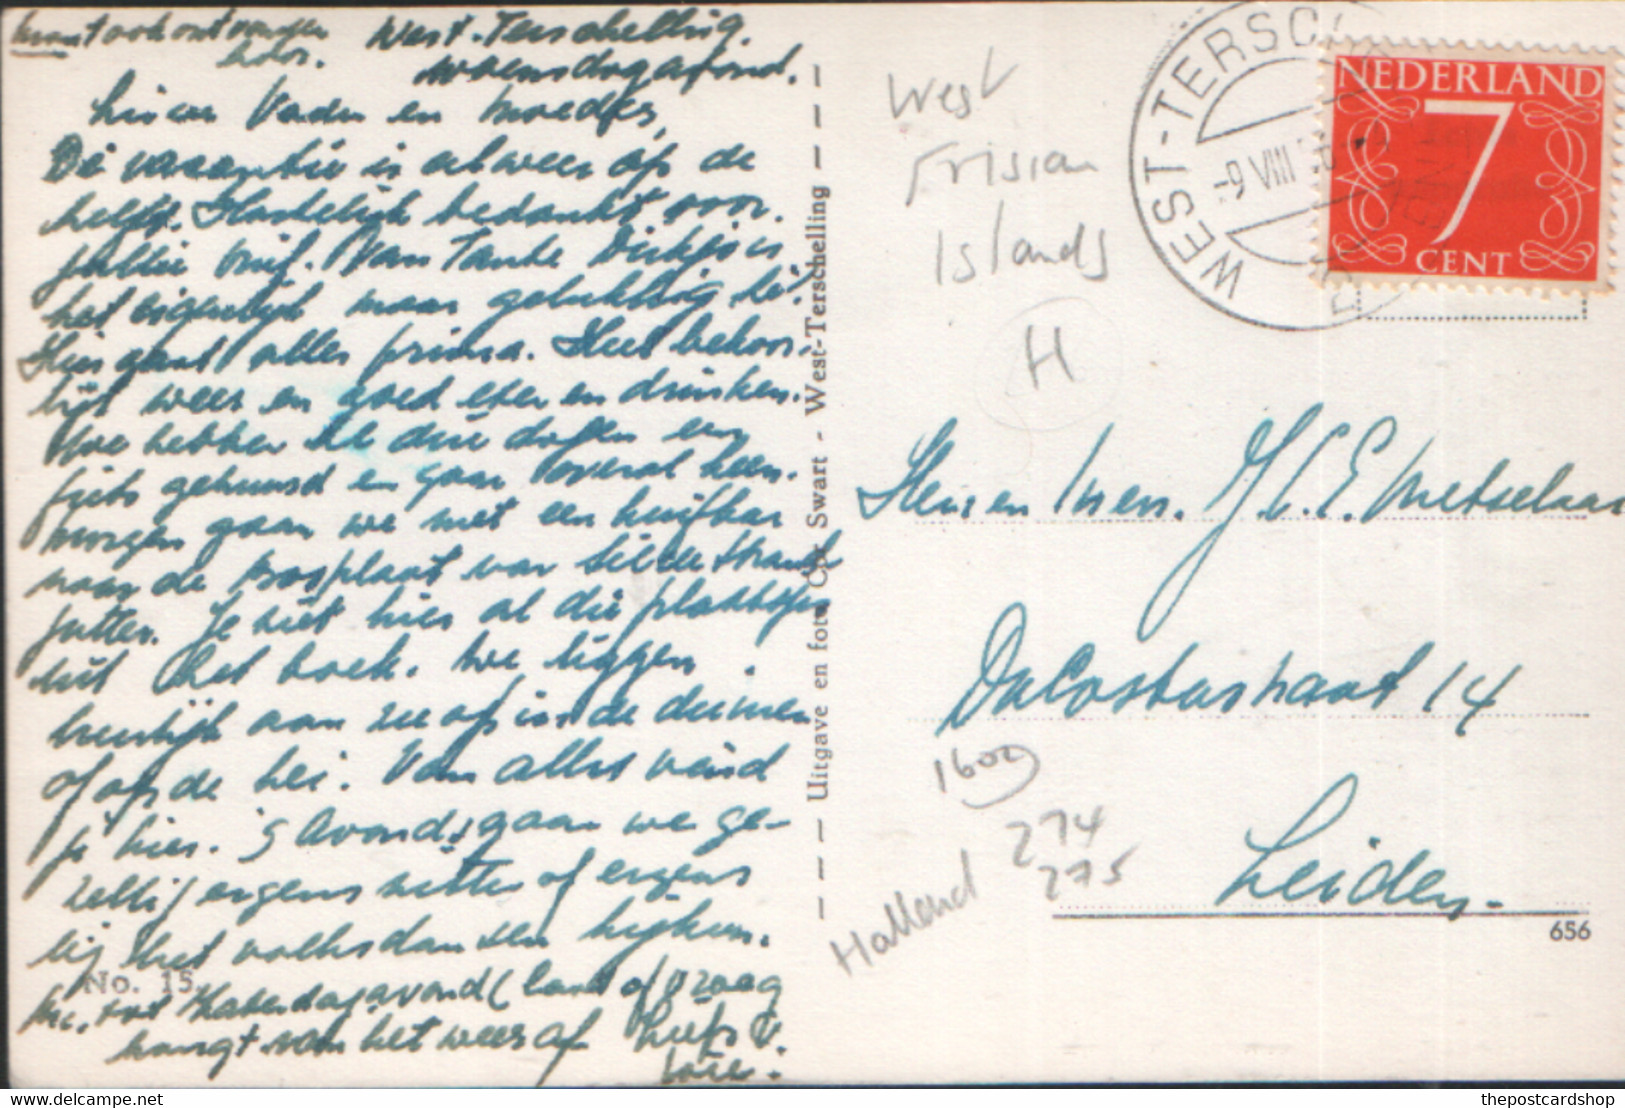 krant ook ontvangen
hoor.
West-Terschelling.
woensdagavond.
Lieve Vader en moeder,
De vacantie is alweer op de
helft. Hartelijk bedankt voor
jullie brief. Van Tante Dirkje is
het eigenlijk maar gelukkig hè!
Hier gaat alles prima. Heel behoor-
lijk weer en goed eten en drinken.
We hebben al drie dagen een
fiets gehuurd en gaan overal heen.
morgen gaan we met een huifkar
naar de Bosplaat van Sil de strand
jutter. Je ziet hier al die plaatsen
uit het boek. We liggen
heerlijk aan zee of in de duinen
of op de hei. Van alles vind
je hier. 's Avonds gaan we ge-
zellig ergens zitten of ergens
bij het volksdansen kijken.
No. 15.
Nu, tot Zaterdagavond (laat of vroeg
hangt van het weer af Liefs v.
Loïe.
Uitgave en foto Cor Swart - West-Terschelling
West
Frisian
Islands
H
WEST-TERSCH
-9 VIII
NEDERLAND
7
CENT
Heer en Mevr. J. C. E. Metselaar
DaCostastraat 14
1602
274
275
Holland
Leiden.
656
hippostcard.com thepostcardshop